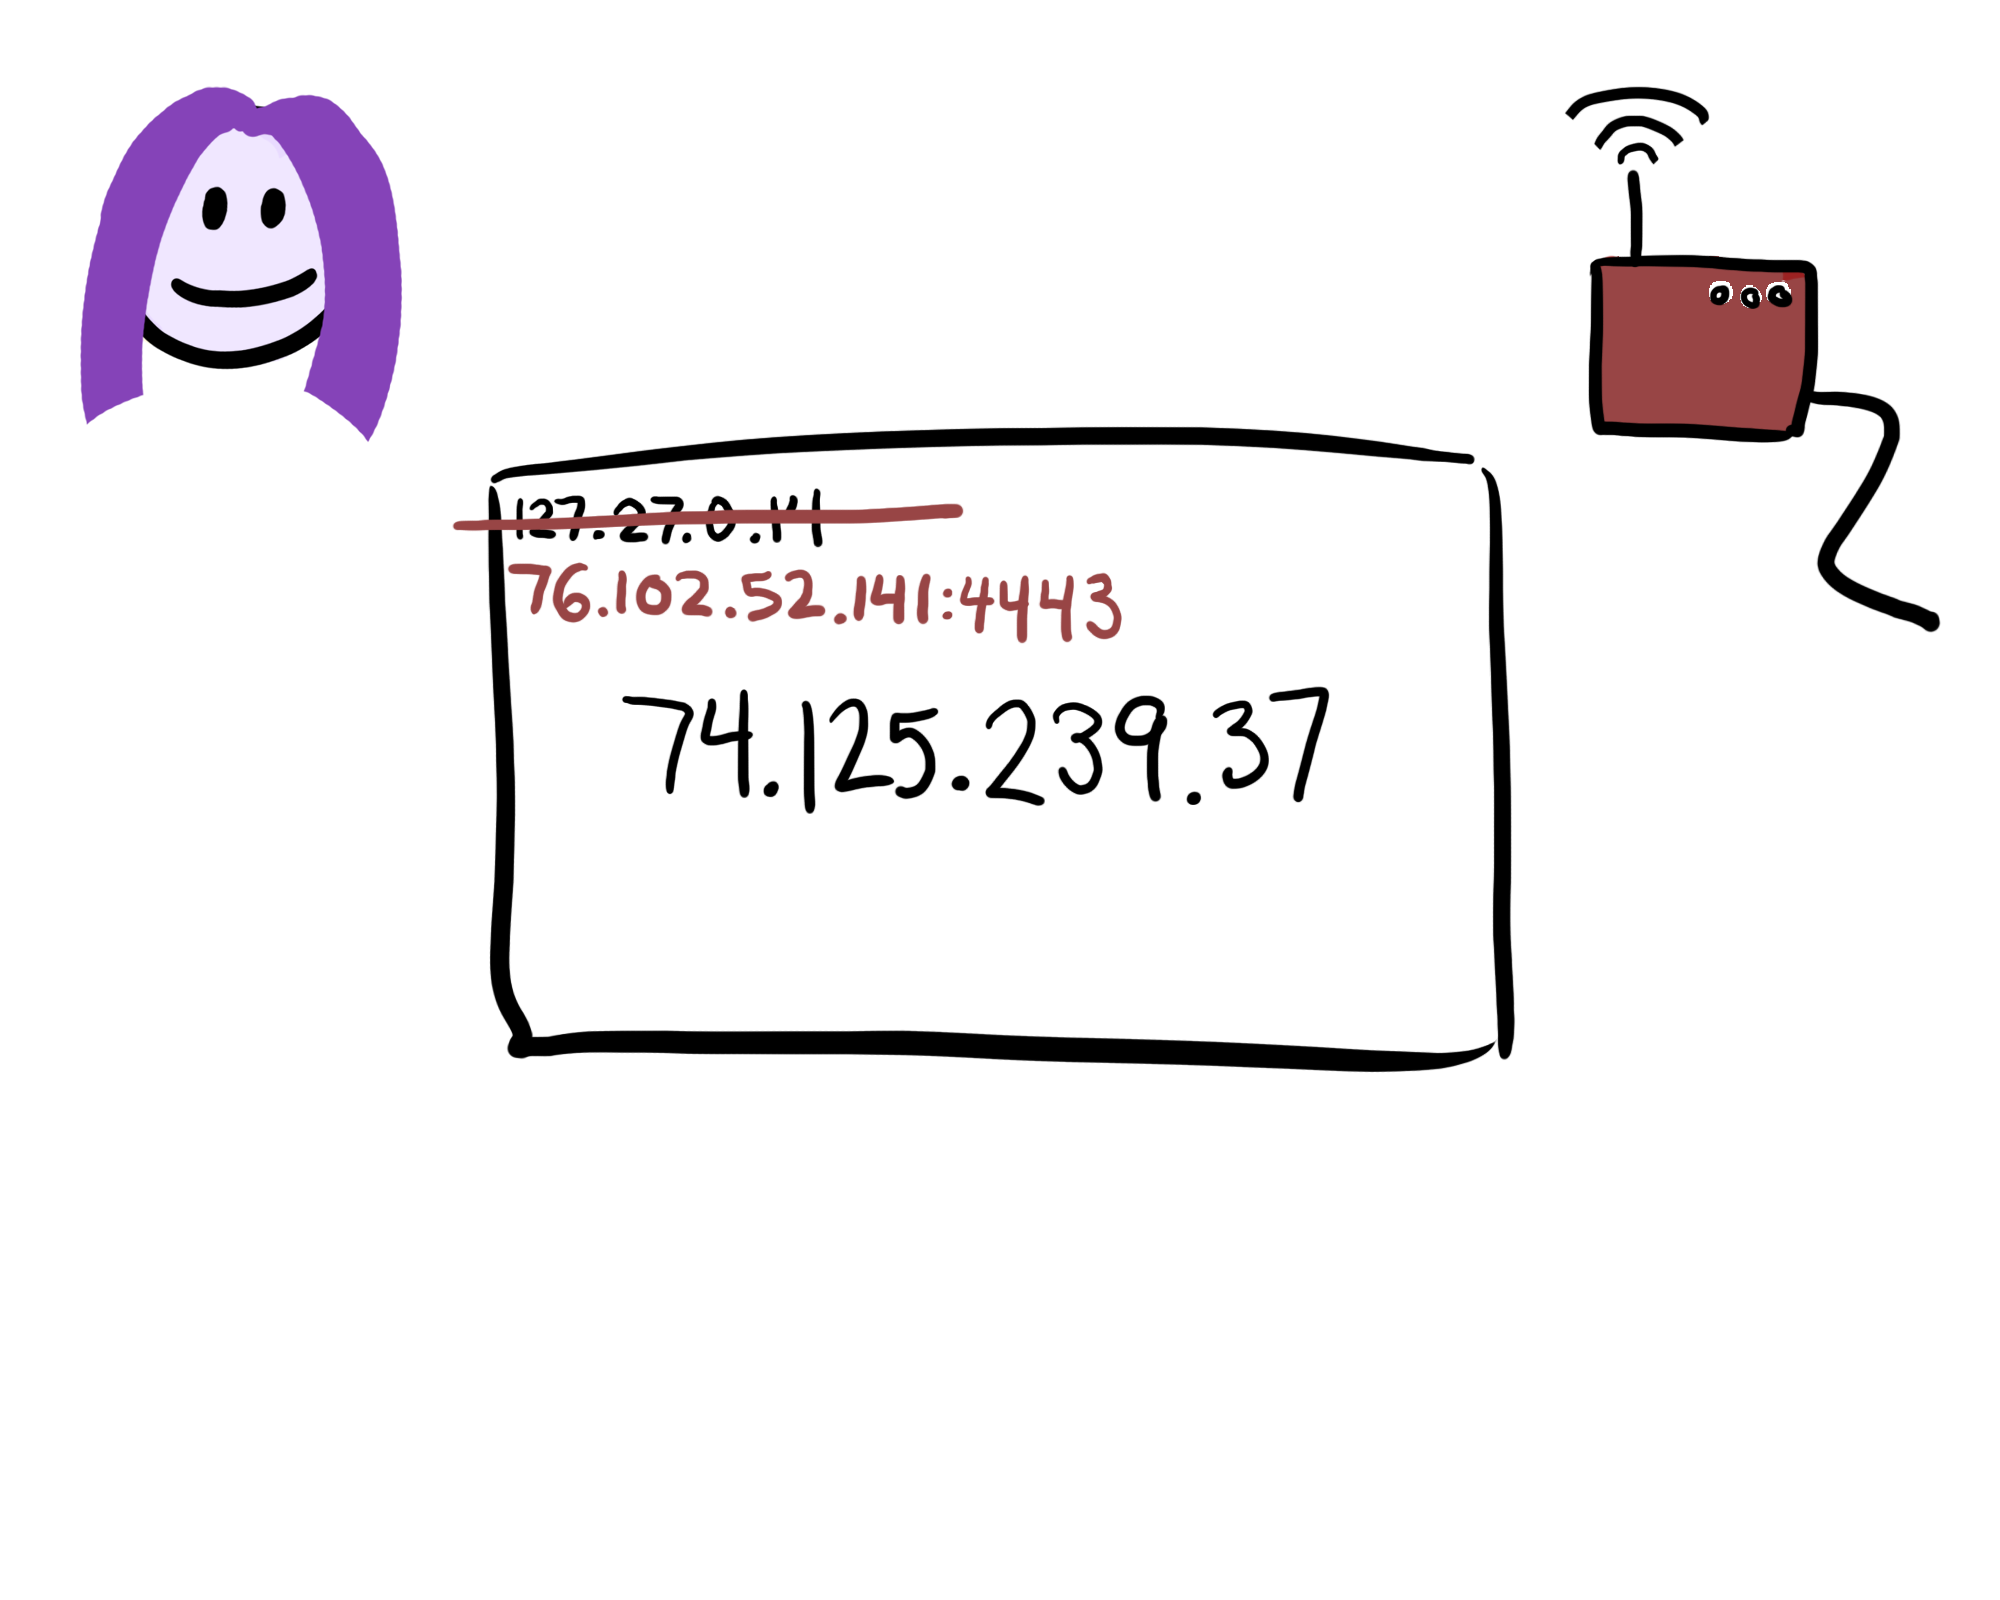 127.27.0.141
76.102.52.141:4443
74.125.239.37